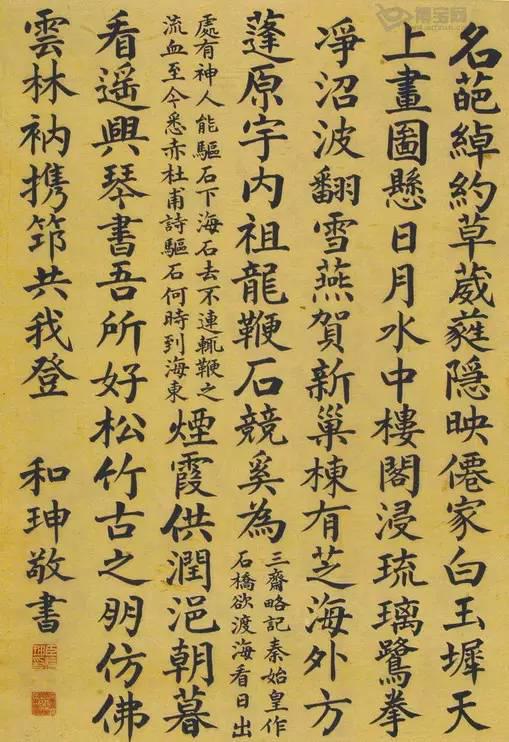 名葩綽約草葳蕤隱映僊家白玉墀天
上畫圖懸日月水中樓閣浸琉璃鷺拳
凈沼波翻雪燕賀新巢棟有芝海外方
蓬原宇内祖龍鞭石競奚為
三齋略記秦始皇作
石橋欲渡海看日出
處有神人能驅石下海石去不連輒鞭之
流血至今悉赤杜甫詩驅石何時到海東
煙霞供潤浥朝暮
看遥興琴書吾所好松竹古之朋仿佛
雲林衲携笻共我登 和珅敬書
博宝网